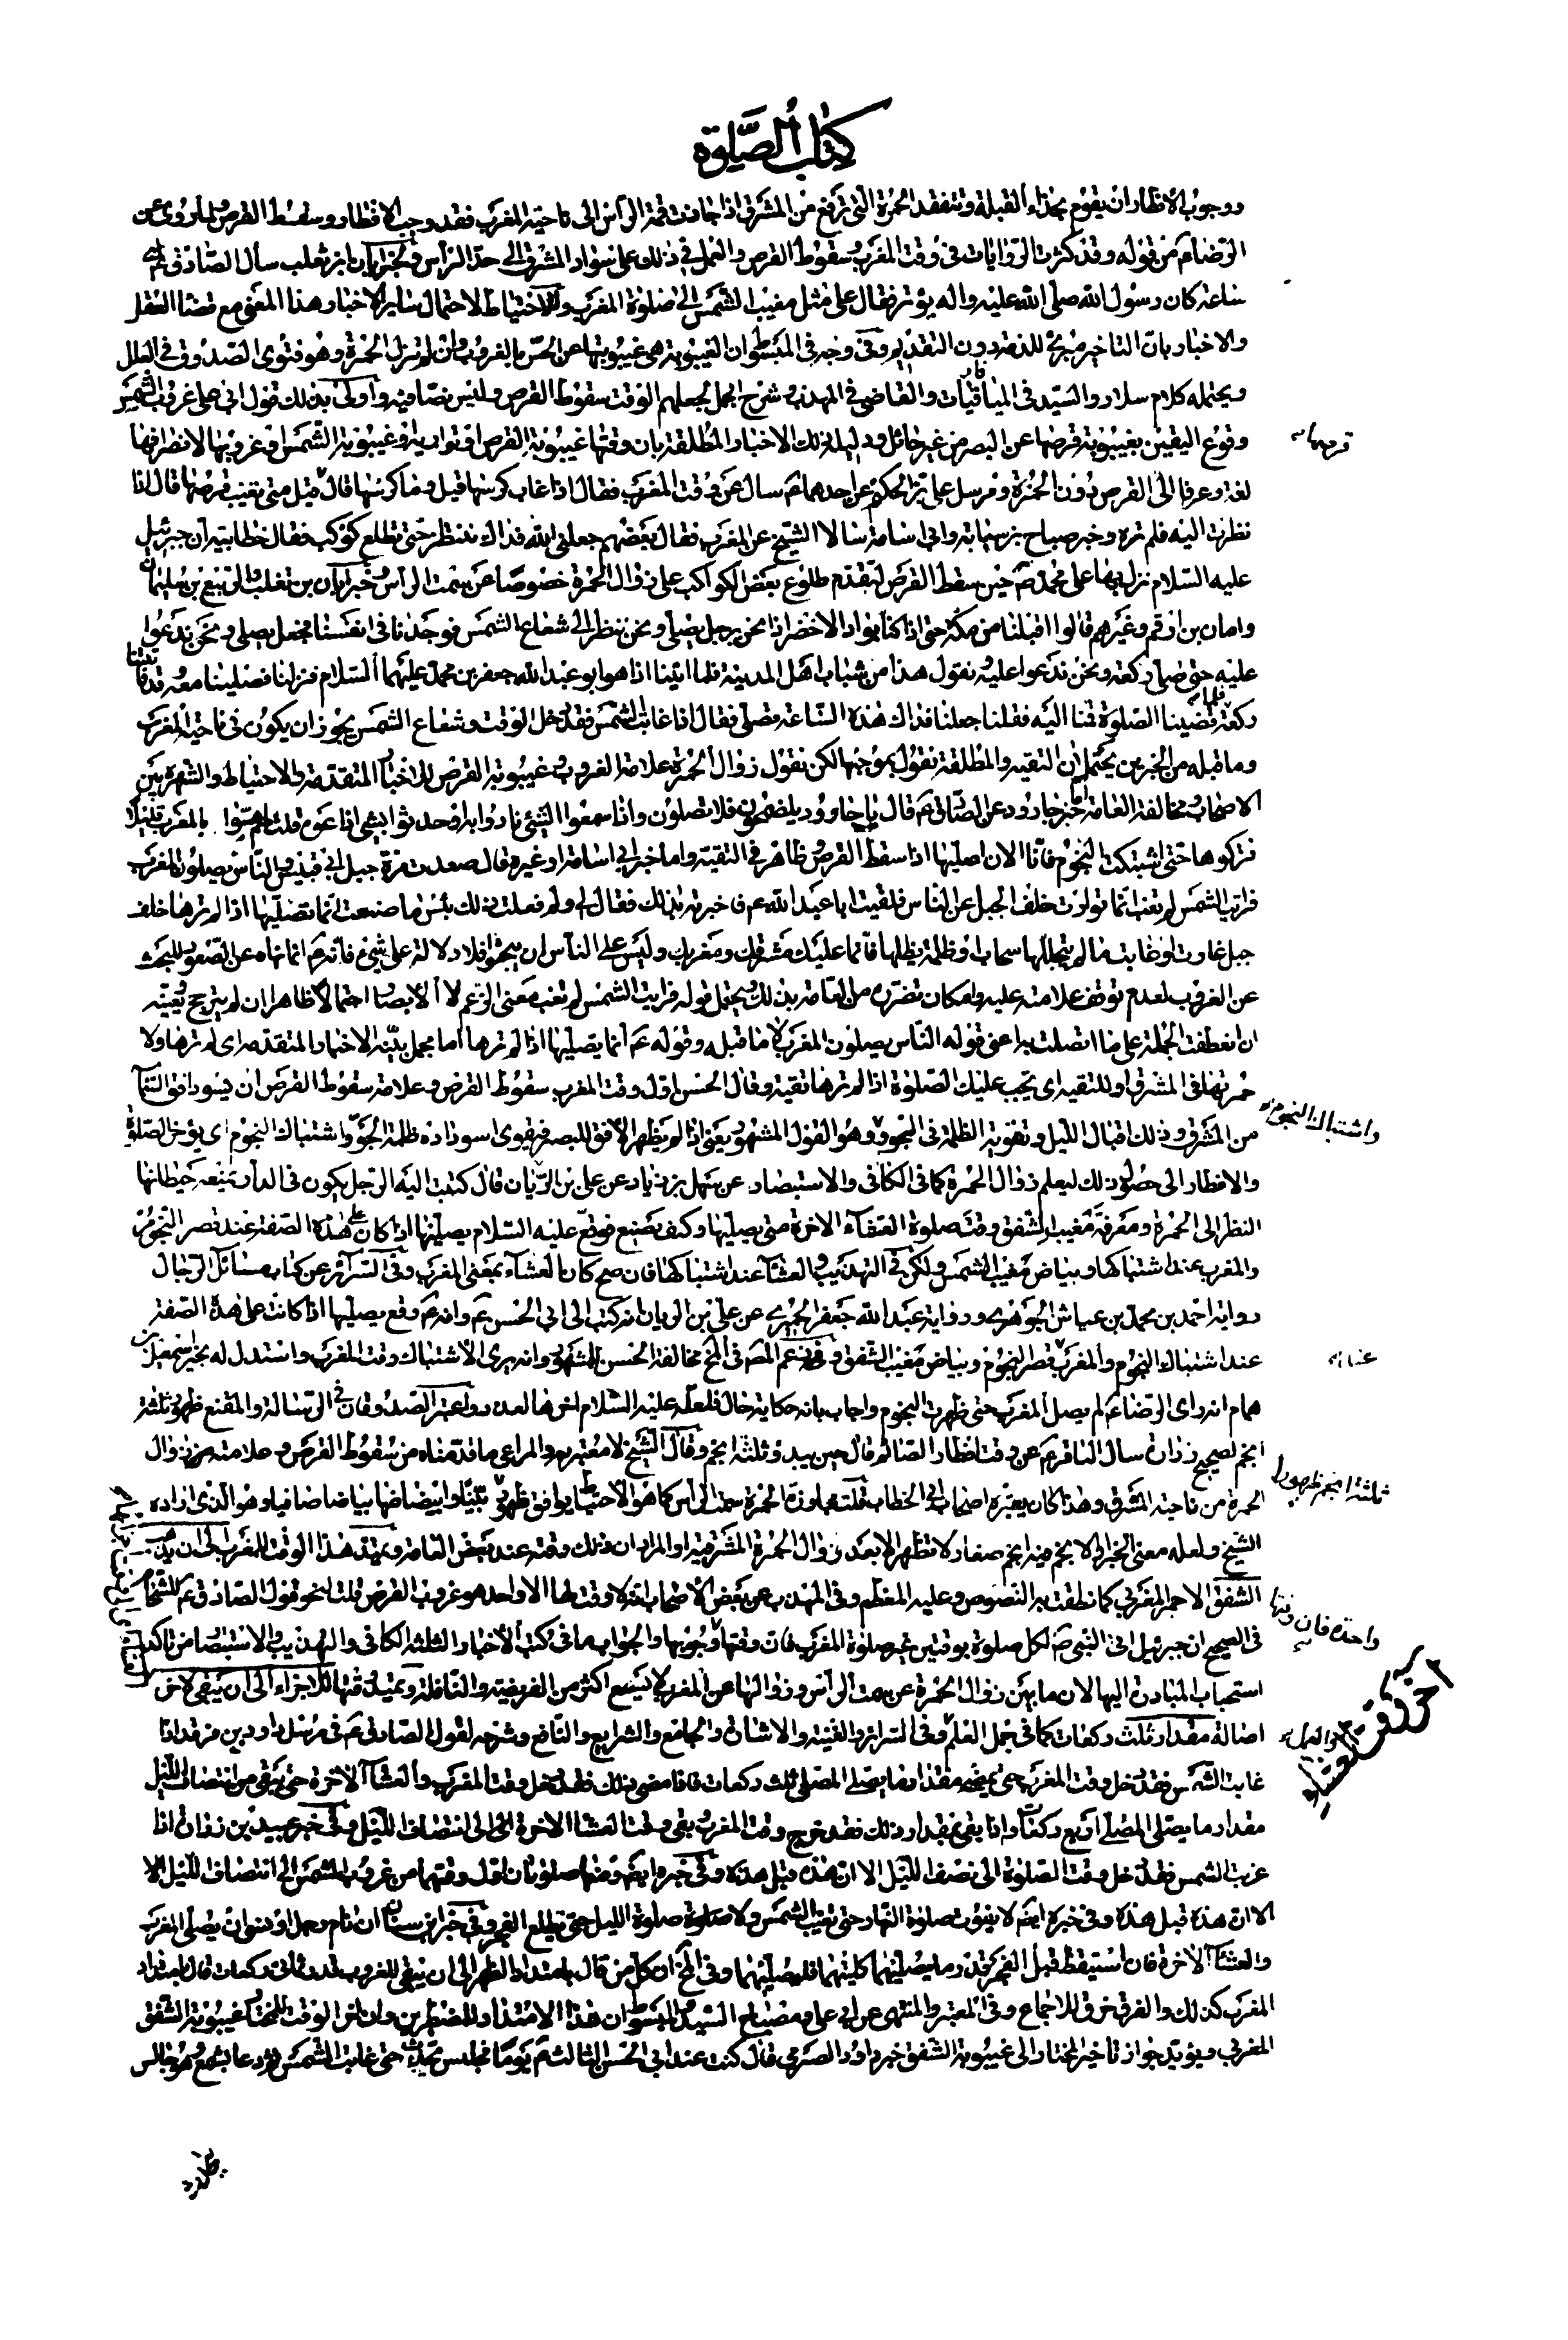 كتاب الصلوة
ووجوب الافطار ان يقوم بحذاء القبلة وتتفقد الحمرة التى ترتفع من المشرق اذا جازت قمة الرأس الى ناحية المغرب فقد وجب الافطار وسقط القرص ولما روى عن
الرضا ع من قوله وقد كثرت الروايات فى وقت المغرب وسقوط القرص والعمل فى ذلك على سواد المشرق الى حد الرأس ولخبر ابان بن تغلب سأل الصادق ع اى
ساعة كان رسول الله صلى الله عليه واله يوتر فقال على مثل مغيب الشمس الى صلوة المغرب وللاحتياط لاحتمال ساير الاخبار هذا المعنى مع قضاء العقل
والاخبار بان التاخير مبرئ للذمة دون التقديم وفى وجه فى المبسوط ان الغيبوبة هى غيبوبتها عن الحس بالغروب وان لم تزل الحمرة وهو فتوى الصدوق فى العلل
ويحتمله كلام سلار والسيد فى الميافارقيات والقاضى فى المهذب وشرح الجمل لجعلهم الوقت سقوط القرص وليس نصا فيه واولى بذلك قول ابى على غروب الشمس
وقوع اليقين بغيبوبة قرصها عن البصر من غير حائل ودليله تلك الاخبار المطلقة بان وقتها غيبوبة القرص او تواريه او غيبوبة الشمس او غروبها لانصرافها
لغة وعرفا الى القرص دون الحمرة ومرسل على بن الحكم عن احدهما ع سأل عن وقت المغرب فقال اذا غاب كرسيها قيل وما كرسيها قال قرصها قيل متى يغيب قرصها قال اذا
نظرت اليه فلم تره وخبر صباح بن سيابة وابى اسامة سألا الشيخ عن المغرب فقال بعضهم جعلنى الله فداك ننتظر حتى تطلع كوكب فقال خطابية ان جبرئيل
عليه السلام نزل بها على محمد ص حين سقط القرص لتقدم طلوع بعض الكواكب على زوال الحمرة خصوصا عن سمت الرأس وخبر ابان بن تغلب والربيع بن سليمان
وامان بن ارقم وغيرهم قالوا اقبلنا من مكة حتى اذا كنا بواد الاخضر اذا نحن برجل يصلى ونحن ننظر الى شعاع الشمس فوجدنا فى انفسنا فجعل يصلى ونحن ندعوا
عليه حتى صلى ركعة ونحن ندعوا عليه ونقول هذا من شباب اهل المدينة فلما اتينا اذا هو ابو عبد الله جعفر بن محمد عليهما السلام فنزلنا فصلينا معه وقد فاتتنا
ركعة فلما قضينا الصلوة قمنا اليه فقلنا جعلنا فداك هذه الساعة تصلى فقال اذا غابت الشمس فقد دخل الوقت وشعاع الشمس يجوز ان يكون فى ناحية المغرب
وما قبله من الخبرين يحتملان التقية والمطلقة نقول بموجبها لكن نقول زوال الحمرة علامة الغروب وغيبوبة القرص للاخبار المتقدمة والاحتياط والشهرة بين
الاصحاب ومخالفة العامة اما خبر جارود عن الصادق ع قال يا جارود ينصحون فلا يقبلون واذا سمعوا الشىء نادوا به او حدثوا بشىء اذاعوه قلت لهم مسوا بالمغرب قليلا
فتركوها حتى اشتبكت النجوم فانا الان اصليها اذا سقط القرص ظاهر فى التقية واما خبر ابى اسامة او غيره قال صعدت مرة جبل ابى قبيس والناس يصلون المغرب
فرايت الشمس لم تغب انما توارت خلف الجبل عن الناس فلقيت ابا عبد الله ع فاخبرته بذلك فقال لى ولم فعلت ذلك بئس ما صنعت انما تصليها اذا لم ترها خلف
جبل غارت او غابت ما لم يتجللها سحاب او ظلمة تظلها فانما عليك مشرقك ومغربك وليس على الناس ان يبحثوا فلا دلالة على شىء فانه ع انما نهاه عن الصعود للبحث
عن الغروب لعدم توقف علامته عليه وامكان تضرره من العامة بذلك ويحتمل قوله فرايت الشمس لم تغب معنى الزعم لا الابصار احتمالا ظاهرا ان لم يترجح تعينه
ان انعطفت الجملة على ما اتصلت به اعنى قوله الناس يصلون المغرب لا ما قبله وقوله ع انما تصليها اذا لم ترها اما مجمل يبينه الاخبار المتقدمة اى لم ترها ولا
حمرتها فى المشرق او للتقية اى يجب عليك الصلوة اذا لم ترها تقية وقال الحسن اول وقت المغرب سقوط القرص وعلامة سقوط القرص ان يسود افق السماء
من المشرق وذلك اقبال الليل وتقوية الظلمة فى الجو واشتباك النجوم وهو القول المشهور يعنى اذا لم يظهر الافق للبصر فهو يعرف اسوداده ظلمة الجو واشتباك النجوم اى يؤخر الصلوة
والافطار الى حصول ذلك ليعلم زوال الحمرة كما فى الكافى والاستبصار عن سهل بن زياد عن على بن الريان قال كتبت اليه الرجل يكون فى الدار تمنعه حيطانها
النظر الى الحمرة ومعرفة مغيب الشفق ووقت صلوة العشاء الاخرة متى يصليها وكيف يصنع فوقع عليه السلام يصليها اذا كان على هذه الصفة عند قصر النجوم
والمغرب عند اشتباكها وبياض مغيب الشمس ولكن فى التهذيب والعشاء عند اشتباكها فان صح كان العشاء بمعنى المغرب وفى السرائر عن كتاب مسائل الرجال
رواية احمد بن محمد بن عياش الجوهرى ورواية عبد الله جعفر الحميرى عن على بن الريان انه كتب الى ابى الحسن ع وانه ع وقع يصليها اذا كانت على هذه الصفة
عند اشتباك النجوم والمغرب عند قصر النجوم وبياض مغيب الشفق وزعم المص فى المخ مخالفة الحسن للمشهور وانه يرى الاشتباك وقت المغرب واستدل له بخبر اسمعيل بن
همام انه راى الرضا ع لم يصل المغرب حتى ظهرت النجوم واجاب بانه حكاية حال فلعله عليه السلام اخرها لعذر واعتبر الصدوقان فى الرسالة والمقنع ظهور ثلثة
انجم لصحيح زرارة سأل الباقر ع عن وقت افطار الصائم قال حين يبدو ثلثة انجم وقال الشيخ لا معتبر به والمراعى ما قدمناه من سقوط القرص وعلامته من زوال
الحمرة من ناحية المشرق وهذا كان يعتبره اصحاب ابى الخطاب قلت مجاوزة الحمرة سمت الرأس كما هو الاحتياط يوافق ظهور ثلثة انجم ظهورا بينا وابيضاضها بياضا صافيا وهو الذى اراده
الشيخ ولعله معنى الخبر الا نجم فيه انجم صغار لا تظهر الا بعد زوال الحمرة المشرقية او المراد ان ذلك وقته عند بعض العامة ويمتد هذا الوقت للمغرب الى ان يذهب
الشفق الاحمر المغربى كما نطقت به النصوص وعليه المعظم وفى المهذب عن بعض الاصحاب انه لا وقت لها الا واحد هو غروب القرص قلت لنحو قول الصادق ع للشحام
فى الصحيح ان جبرئيل اتى النبى ص لكل صلوة بوقتين غير صلوة المغرب فان وقتها واحد فان وقتها وجوبها والجواب ما فى كتب الاخبار الثلثة الكافى والتهذيب والاستبصار من تاكد
استحباب المبادرة اليها لان ما بين زوال الحمرة عن سمت الرأس وزوالها عن المغرب لا يتسع اكثر من الفريضة والنافلة ويمتد وقتها للاجزاء الى ان يبقى لاخر
اصالة مقدار ثلث ركعات كما فى جمل العلم والعمل وفى السرائر والغنية والاشارة والجامع والشرايع والنافع وشرحه لقول الصادق ع فى مرسل داود بن فرقد اذا
غابت الشمس فقد دخل وقت المغرب حتى يمضى مقدار ما يصلى المصلى ثلث ركعات فاذا مضى ذلك فقد دخل وقت المغرب والعشاء الاخرة حتى يبقى من انتصاف الليل
مقدار ما يصلى المصلى اربع ركعات واذا بقى بمقدار ذلك فقد خرج وقت المغرب وبقى وقت العشاء الاخرة الى انتصاف الليل وفى خبر عبيد بن زرارة اذا
غربت الشمس فقد دخل وقت الصلوة الى نصف الليل الا ان هذه قبل هذه وفى خبره ايضا ومنها صلوتان اول وقتهما من غروب الشمس الى انتصاف الليل الا
الا ان هذه قبل هذه وفى خبره ايضا لا يفوت صلوة النهار حتى تغيب الشمس ولا صلوة الليل حتى يطلع الفجر وفى خبر ابن سنان ان نام رجل او نسى ان يصلى المغرب
والعشاء الاخرة فان استيقظ قبل الفجر قدر ما يصليهما كلتيهما فليصليهما وفى المخ ان كل من قال بامتداد الظهر الى ان يبقى للغروب قدر ثمانى ركعات قال بامتداد
المغرب كذلك والفرق خرق للاجماع وفى المعتبر والمنتهى عن ابى على ومصباح السيد والمبسوط ان هذا الامتداد للمضطرين وان اخر الوقت للمختار غيبوبة الشفق
المغربى ويؤيد جواز تاخير المختار الى غيبوبة الشفق خبر داود الصرمى قال كنت عند ابى الحسن الثالث ع يوما فجلس يحدث حتى غابت الشمس ثم دعا بشمع وهو جالس
قرصها
واشتباك النجوم
عند
ثلثة انجم ظهورا
واحدة فان وقتها
والعمل